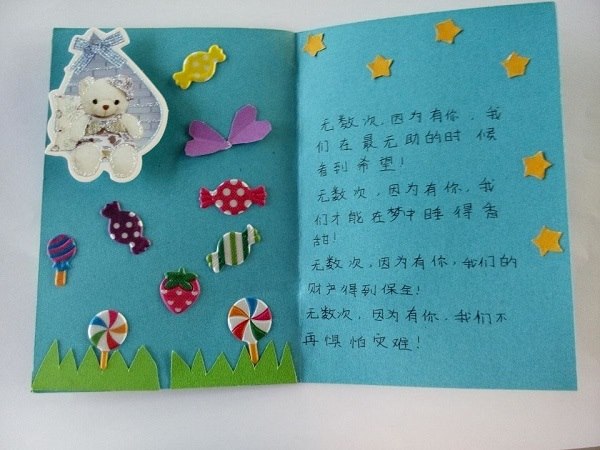 无数次，因为有你，我
们在最无助的时候
看到希望！
无数次，因为有你，我
们才能在梦中睡得香
甜！
无数次，因为有你，我们的
财产得到保全！
无数次，因为有你，我们不
再惧怕灾难！